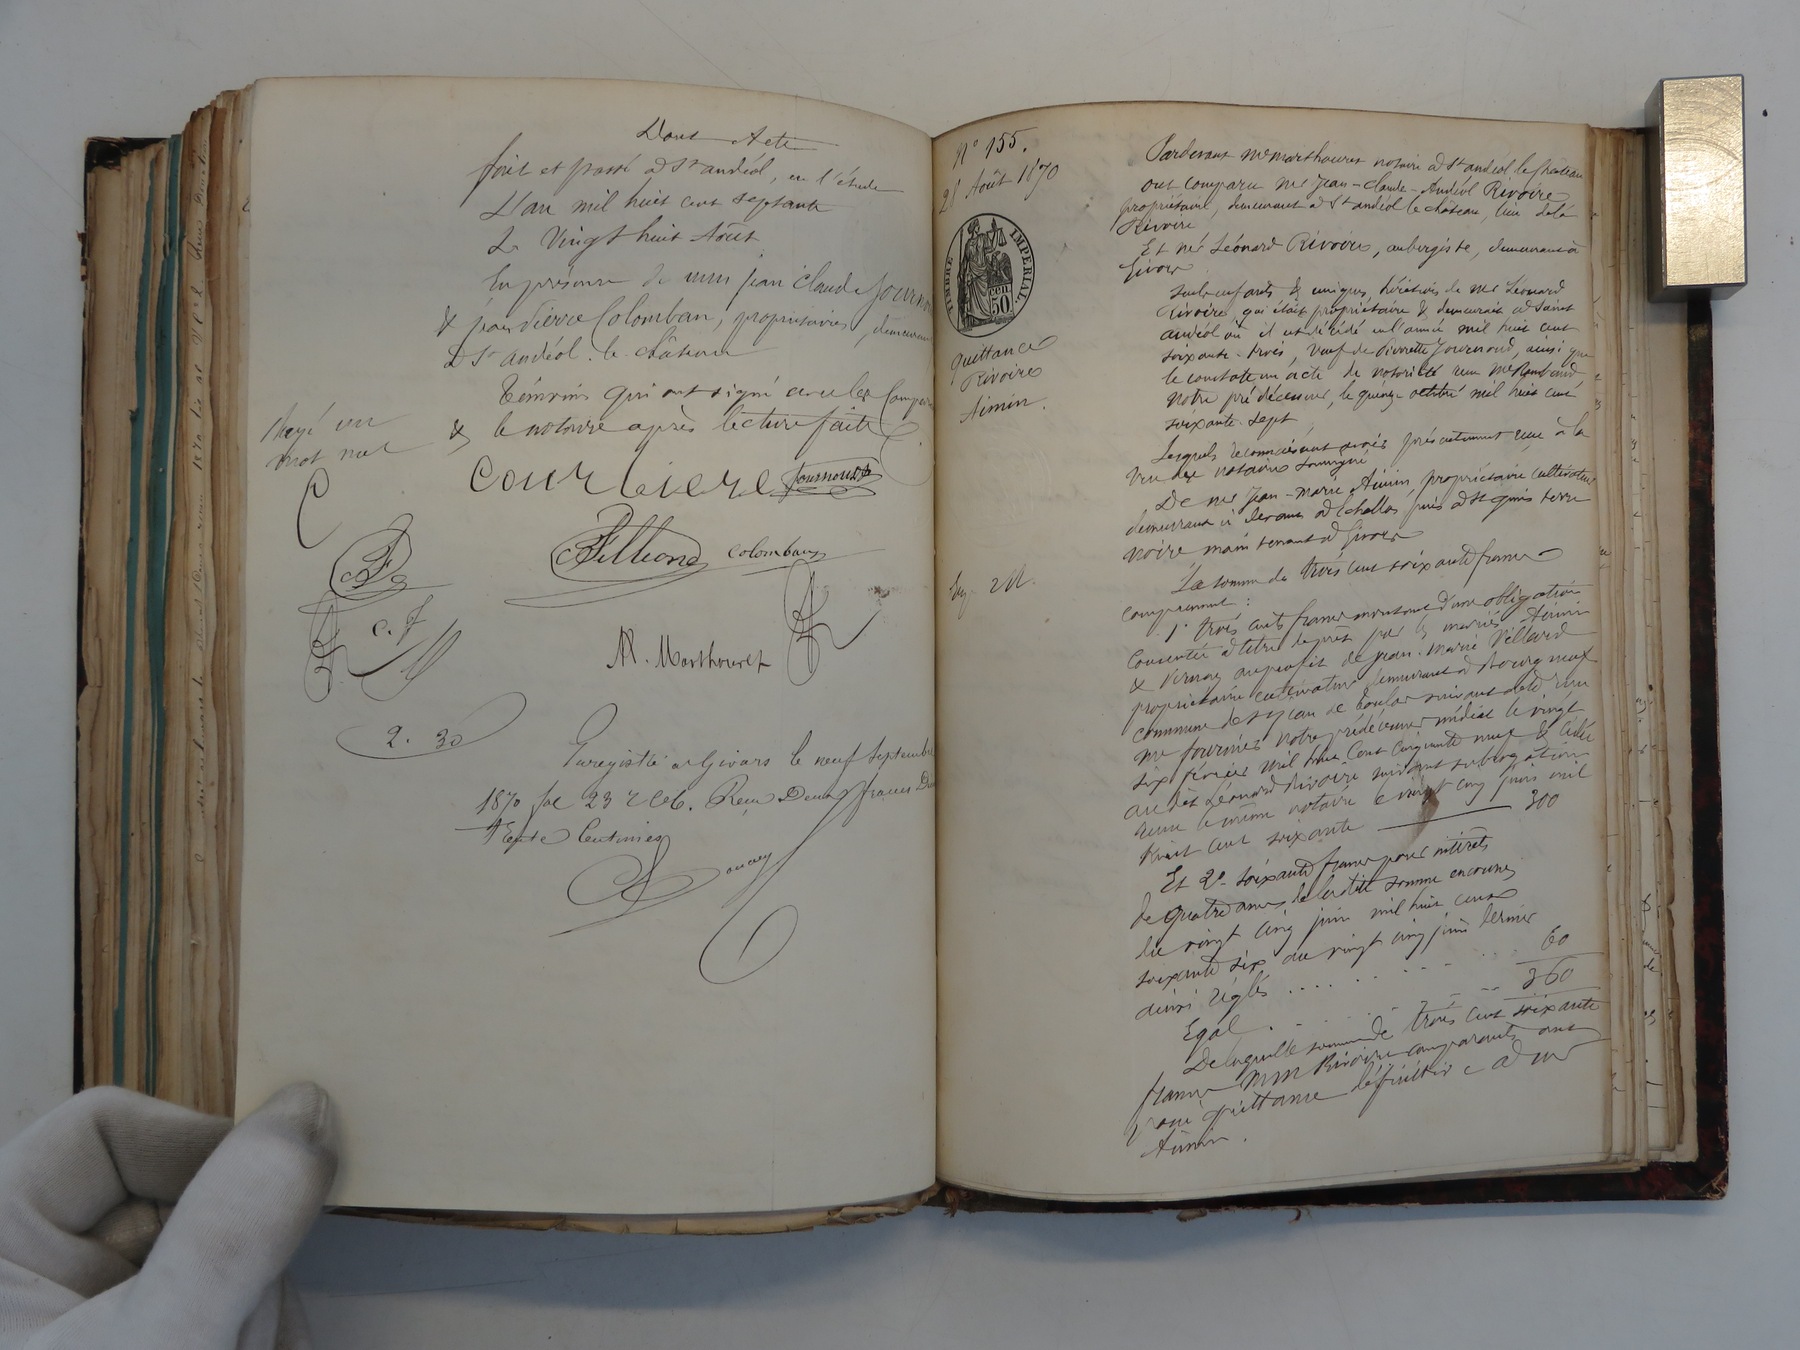 Dont Acte
fait et passé à St andéol, en l'étude
L'an mil huit cent septante
Le Vingt huit Août
En présence de mm Jean Claude Journoud
& Jean Pierre Colomban, propriétaires, demeurant
à St andéol-le-château
Témoins qui ont signé avec les Compar
& le notaire après lecture faite
Rayé un
mot nul
courbiere Journoud
Fillion colomban
C. F
M
A. Marthouret
2. 30
Enregistré à Givors le neuf Septembre
1870 foe 23 r Cel. Reçu Deux francs
trente Centimes
N° 155.
28 Août 1870
TIMBRE IMPERIAL
50 cen.
quittance
Rivoire
Aimin.
Pardevant Me Marthouret notaire à St andéol le château
ont comparu Mr Jean-Claude-Andéol Rivoire
propriétaire, demeurant à St andéol le château, lieu de la
Rivoire
Et Mr Léonard Rivoire, aubergiste, demeurant à
Givors
seuls enfants & uniques héritiers de Mr Léonard
Rivoire, qui était propriétaire & demeurait à Saint
andéol où il est décédé en l'année mil huit cent
soixante-trois, veuf de Pierrette Journoud, ainsi que
le constate un acte de notoriété reçu Me
notre prédécesseur, le quinze octobre mil huit cent
soixante-sept
Lesquels reconnaissent avoir présentement reçu à la
vue du notaire soussigné
De Mr Jean-Marie Aimin, propriétaire cultivateur
demeurant ci devant à Echallas puis à St genis terre
noire maintenant à Givors
La somme de trois cent soixante francs
comprenant :
1° trois cents francs montant d'une obligation
consentie à titre de prêt par les mariés Aimin
& Vernay au profit de Jean-Marie Villard
propriétaire cultivateur demeurant à Bourgneuf
commune de St Jean de Toulas suivant acte reçu
Me fournier notre prédécesseur médiat le vingt
six février mil huit cent cinquante neuf & cédée
au dit Léonard Rivoire suivant subrogation
reçue le même notaire le vingt cinq juin mil
huit cent soixante 300
Et 2° soixante francs pour intérêts
de quatre annés de la dite somme encourus
du vingt cinq juin mil huit cent
soixante six au vingt cinq juin dernier
ainsi réglés .... 60
Egal . 360
De laquelle somme de trois cent soixante
francs MM Rivoire comparants ont
passé quittance définitive à Mr
Aimin.